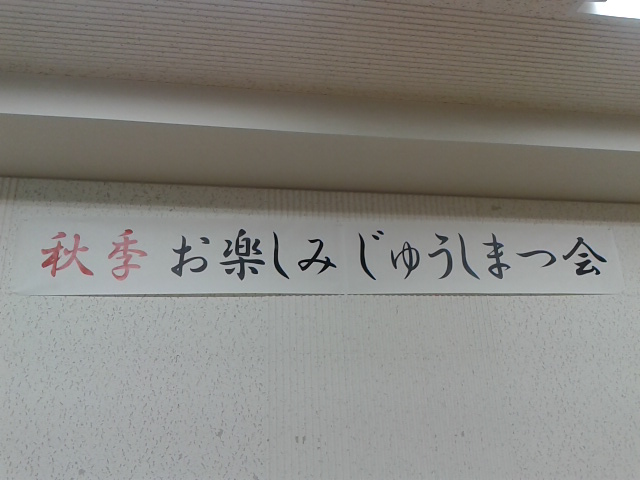 秋季 お楽しみ じゅうしまつ会